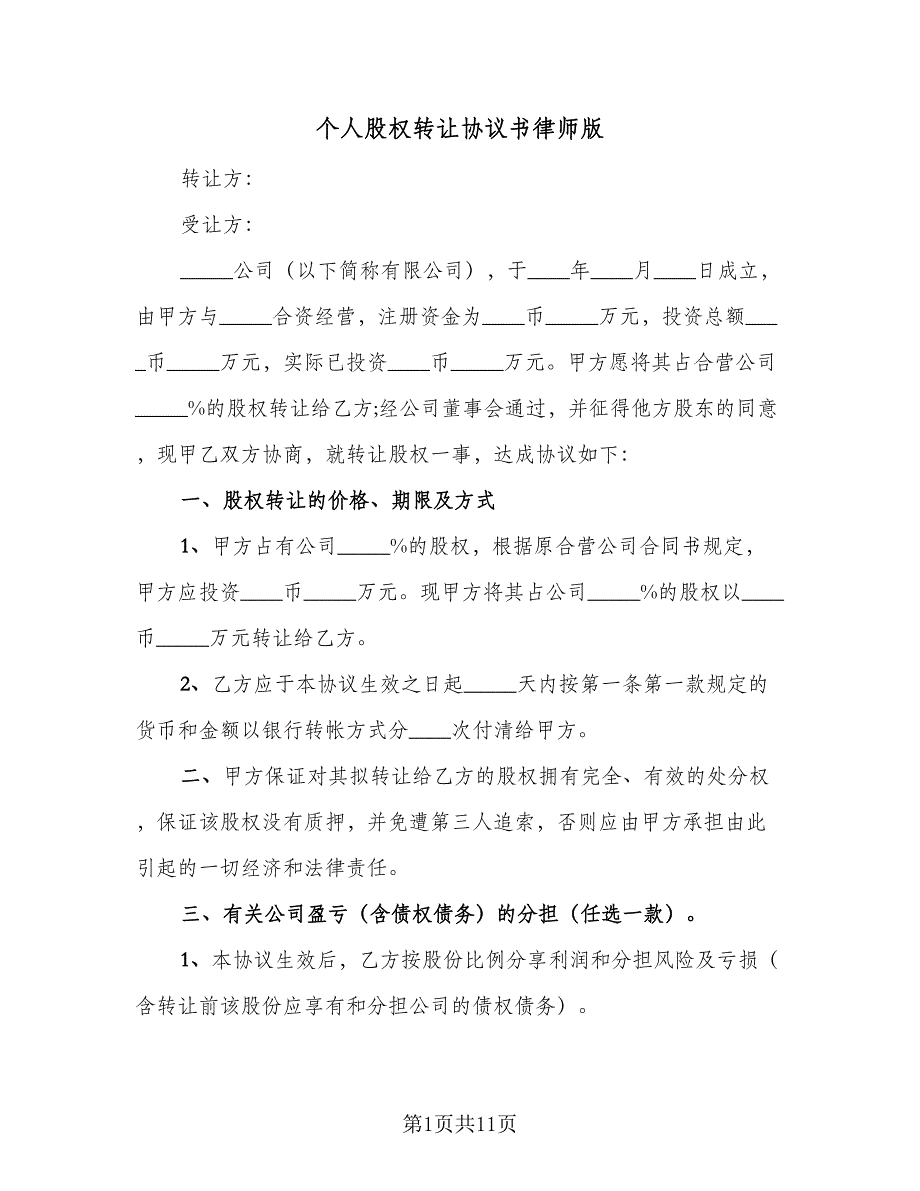 个人股权转让协议书律师版
转让方：
受让方：
_____公司（以下简称有限公司），于____年____月____日成立，
由甲方与_____合资经营，注册资金为____币_____万元，投资总额___
_币_____万元，实际已投资____币_____万元。甲方愿将其占合营公司
_____%的股权转让给乙方;经公司董事会通过，并征得他方股东的同意
，现甲乙双方协商，就转让股权一事，达成协议如下：
一、股权转让的价格、期限及方式
1、甲方占有公司_____%的股权，根据原合营公司合同书规定，
甲方应投资____币_____万元。现甲方将其占公司_____%的股权以____
币_____万元转让给乙方。
2、乙方应于本协议生效之日起_____天内按第一条第一款规定的
货币和金额以银行转帐方式分____次付清给甲方。
二、甲方保证对其拟转让给乙方的股权拥有完全、有效的处分权
，保证该股权没有质押，并免遭第三人追索，否则应由甲方承担由此
引起的一切经济和法律责任。
三、有关公司盈亏（含债权债务）的分担（任选一款）。
1、本协议生效后，乙方按股份比例分享利润和分担风险及亏损（
含转让前该股份应享有和分担公司的债权债务）。
第1页共11页